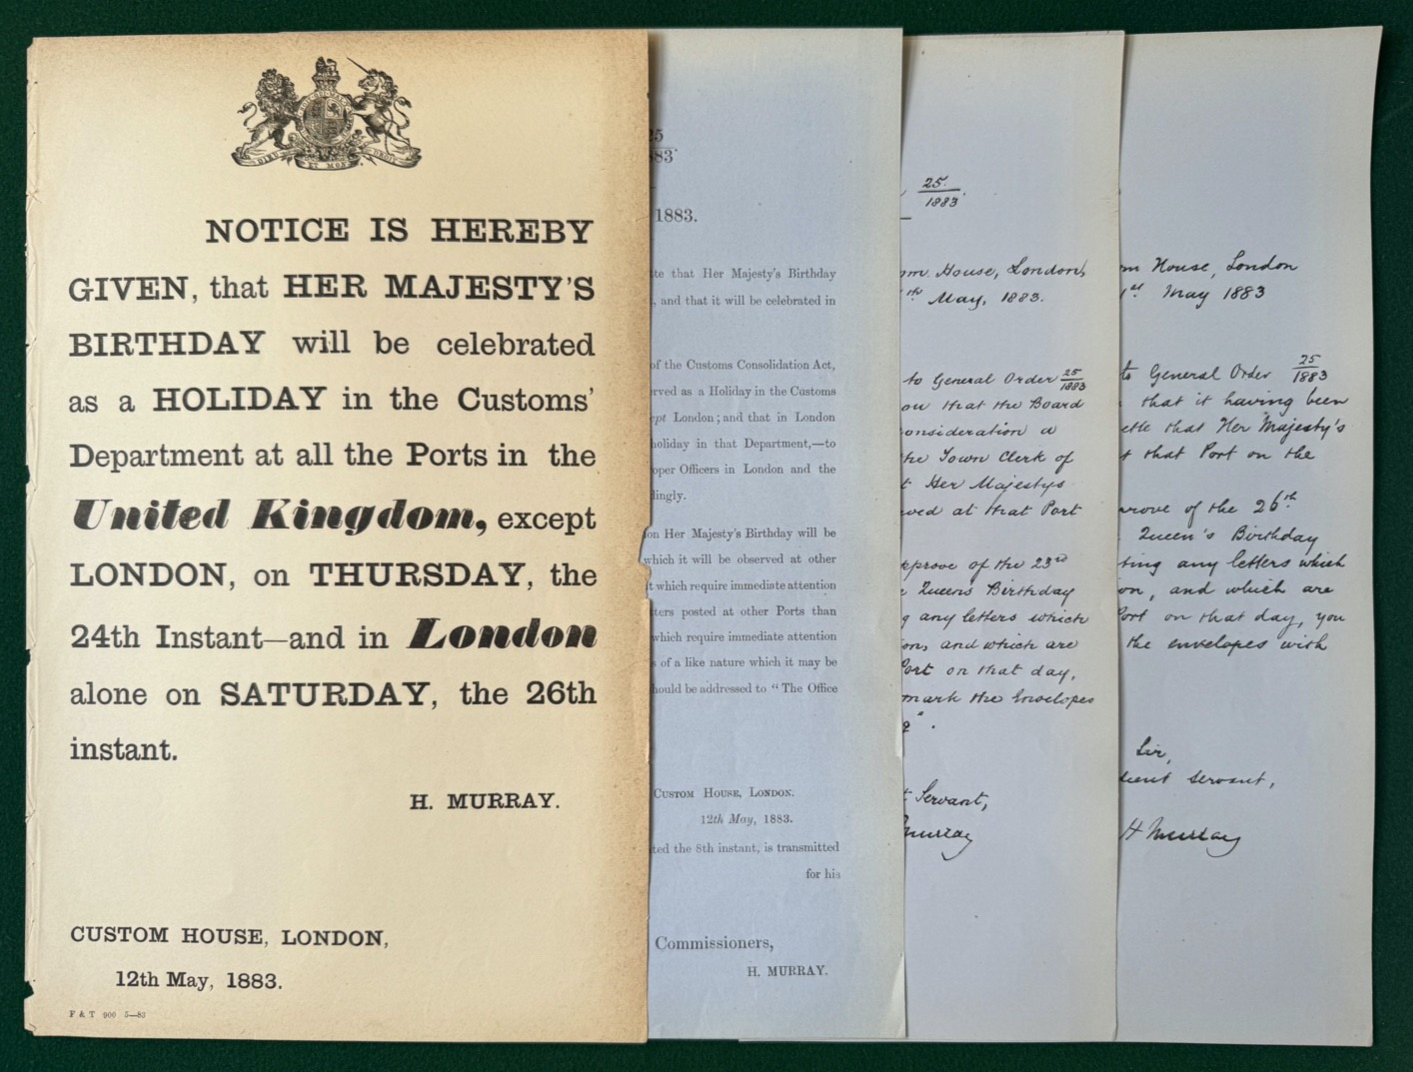 DIEU ET MON DROIT
NOTICE IS HEREBY
GIVEN, that HER MAJESTY'S
BIRTHDAY will be celebrated
as a HOLIDAY in the Customs'
Department at all the Ports in the
United Kingdom, except
LONDON, on THURSDAY, the
24th Instant—and in London
alone on SATURDAY, the 26th
instant.
H. MURRAY.
CUSTOM HOUSE, LONDON,
12th May, 1883.
F & T 900 5—83
25
83
1883.
te that Her Majesty's Birthday
, and that it will be celebrated in
of the Customs Consolidation Act,
rved as a Holiday in the Customs
ept London; and that in London
holiday in that Department,—to
oper Officers in London and the
lingly.
on Her Majesty's Birthday will be
which it will be observed at other
t which require immediate attention
ters posted at other Ports than
which require immediate attention
s of a like nature which it may be
hould be addressed to "The Office
CUSTOM HOUSE, LONDON.
12th May, 1883.
ted the 8th instant, is transmitted
for his
Commissioners,
H. MURRAY.
25
1883
om House, London,
th May, 1883.
to General Order 25/1883
ou that the Board
onsideration a
he Town Clerk of
t Her Majestys
ved at that Port
pprove of the 23rd
e Queens Birthday
g any letters which
ons and which are
Port on that day,
mark the Envelopes
g".
t Servant,
Murray
om House, London
1st May 1883
to General Order 25/1883
that it having been
ette that Her Majesty's
t that Port on the
prove of the 26th
Queen's Birthday
ting any letters which
on, and which are
Port on that day, you
the envelopes with
Sir,
dient servant,
H Murray